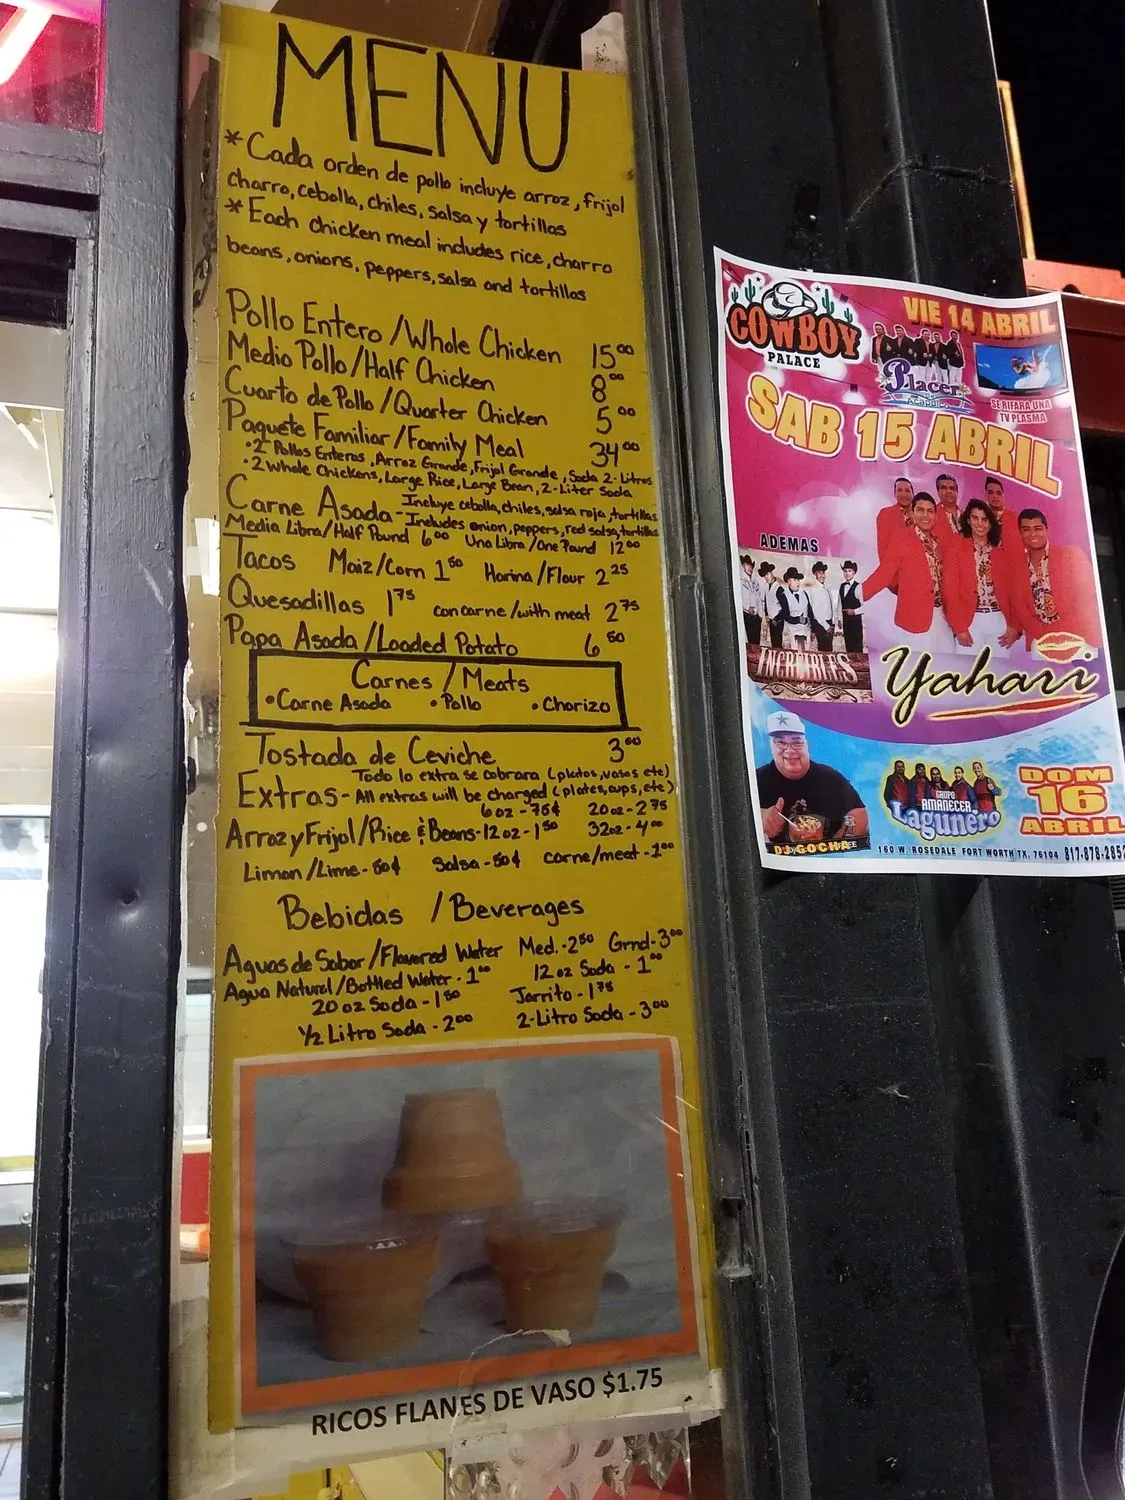 MENU
*Cada orden de pollo incluye arroz, frijol
charro, cebolla, chiles, salsa y tortillas
*Each chicken meal includes rice, charro
beans, onions, peppers, salsa and tortillas
Pollo Entero /Whole Chicken 15⁰⁰
Medio Pollo/Half Chicken 8⁰⁰
Cuarto de Pollo /Quarter Chicken 5⁰⁰
Paquete Familiar/Family Meal 34⁰⁰
• 2 Pollos Enteros, Arroz Grande, Frijol Grande, Soda 2-Litros
• 2 Whole Chickens, Large Rice, Large Bean, 2-Liter Soda
Carne Asada- Incluye cebolla, chiles, salsa roja, tortillas
Includes onion, peppers, red salsa, tortillas
Media Libra/Half Pound 6⁰⁰ Una Libra/One Pound 12⁰⁰
Tacos Maiz/Corn 1⁵⁰ Harina/Flour 2²⁵
Quesadillas 1⁷⁵ con carne/with meat 2⁷⁵
Papa Asada/Loaded Potato 6⁵⁰
Carnes / Meats
•Carne Asada •Pollo •Chorizo
Tostada de Ceviche 3⁰⁰
Todo lo extra se cobrara (platos, vasos etc)
Extras- All extras will be charged (plates, cups, etc)
6 oz - 75¢ 20oz - 2⁷⁵
Arroz y Frijol/Rice & Beans-12 oz - 1⁵⁰ 32oz - 4⁰⁰
Limon /Lime - 50¢ Salsa - 50¢ carne/meat - 1⁰⁰
Bebidas /Beverages
Aguas de Sabor/Flavored Water Med. - 2⁵⁰ Grnd - 3⁰⁰
Agua Natural/Bottled Water - 1⁰⁰ 12 oz Soda - 1⁰⁰
20 oz Soda - 1⁵⁰ Jarrito - 1⁷⁵
½ Litro Soda - 2⁰⁰ 2-Litro Soda - 3⁰⁰
RICOS FLANES DE VASO $1.75
COWBOY
PALACE
VIE 14 ABRIL
Placer
de Acapulco
SE RIFARA UNA
TV PLASMA
SAB 15 ABRIL
ADEMAS
INCREIBLES
Yahari
DJ GOCHA
GRUPO
AMANECER
Lagunero
DOM
16
ABRIL
160 W. ROSEDALE FORT WORTH TX. 76104 817-878-285